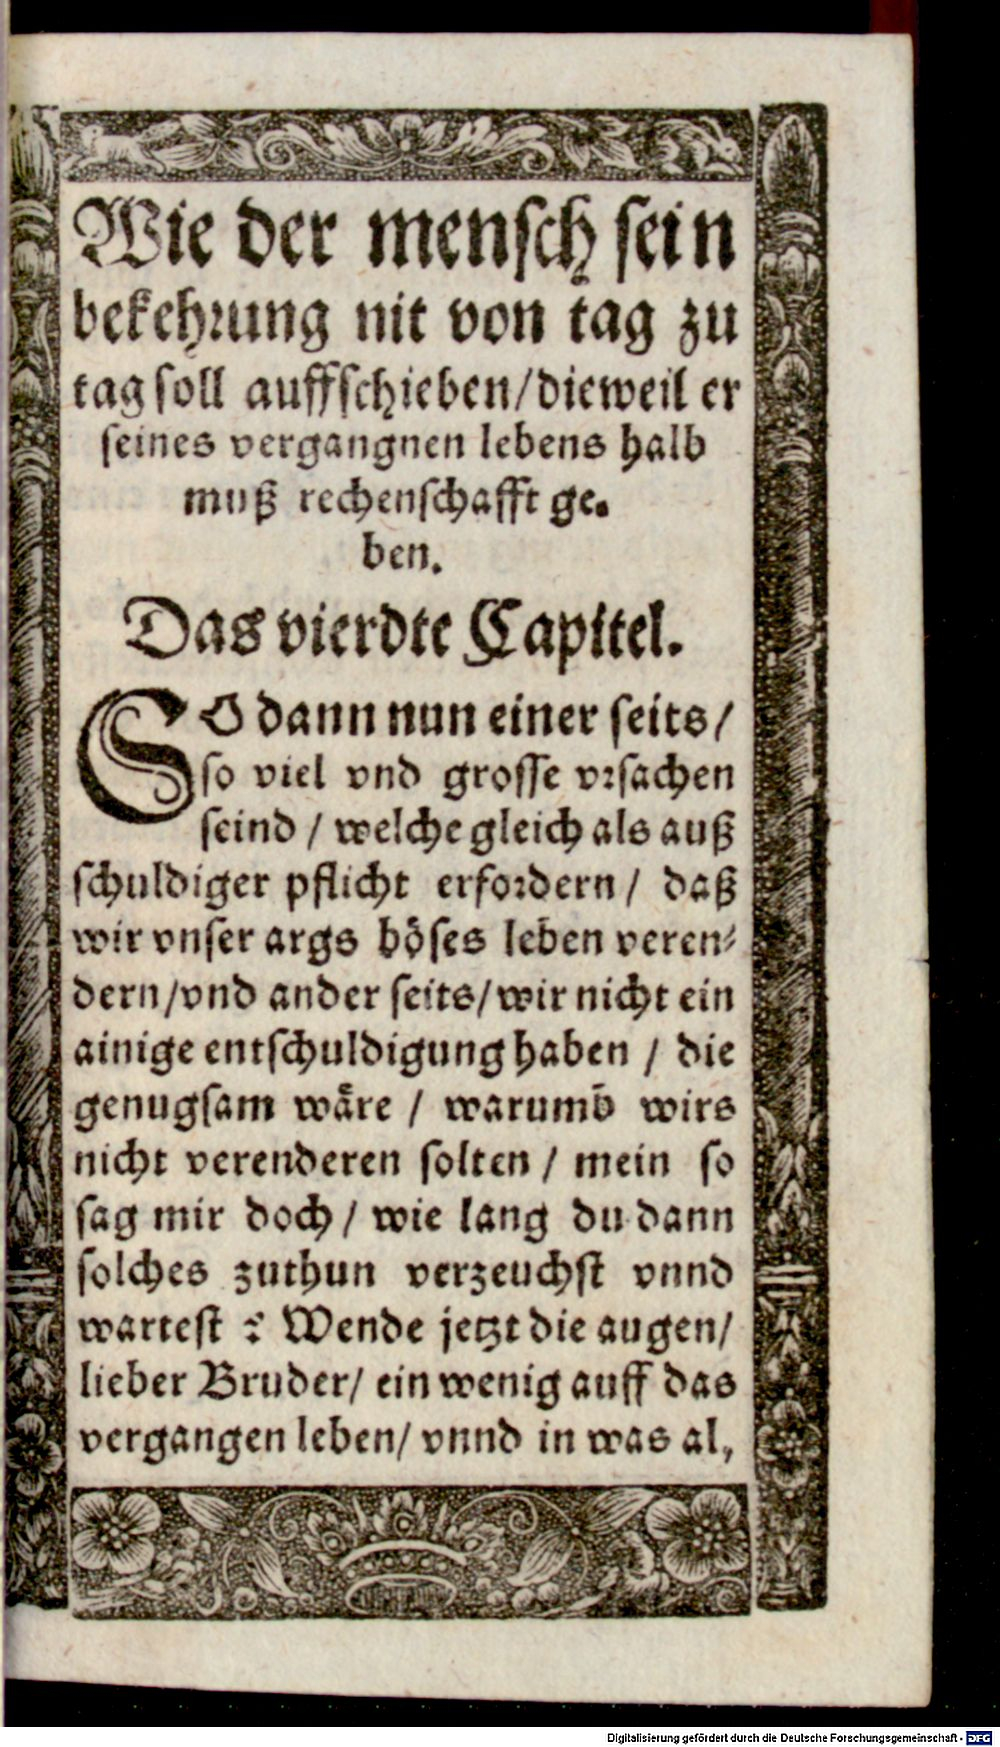 Wie der mensch sein
bekehrung nit von tag zu
tag soll auffschieben/dieweil er
seines vergangnen lebens halb
muß rechenschafft ge-
ben.
Das vierdte Capitel.
SO dann nun einer seits/
so viel vnd grosse vrsachen
seind / welche gleich als auß
schuldiger pflicht erfordern / daß
wir vnser args böses leben veren-
dern/vnd ander seits/wir nicht ein
ainige entschuldigung haben / die
genugsam wäre / warumb wirs
nicht verenderen solten / mein so
sag mir doch / wie lang du dann
solches zuthun verzeuchst vnnd
wartest ? Wende jetzt die augen/
lieber Bruder/ ein wenig auff das
vergangen leben/ vnnd in was al,
Digitalisierung gefördert durch die Deutsche Forschungsgemeinschaft - DFG